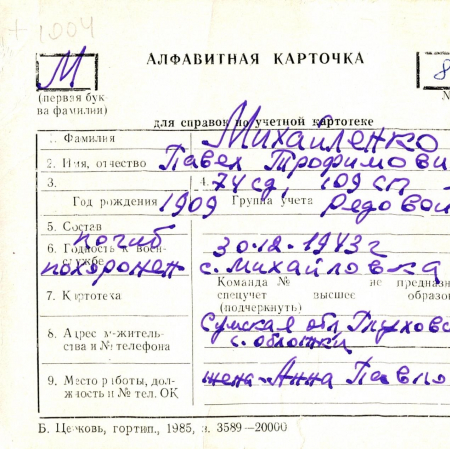 + 1004
М
АЛФАВИТНАЯ КАРТОЧКА
8
(первая бук-
ва фамилии)
№
для справок по учетной картотеке
1. Фамилия Михайленко
2. Имя, отчество Павел Трофимови
3. 4. 74 сд, 109 сп
Год рождения 1909 Группа учета Рядовой
5. Состав
погиб
6. Годность к воен-
службе 30.12.1943 г
похоронен с. Михайловка
Команда № не предназн
7. Картотека спецучет высшее образо
(подчеркнуть)
8. Адрес м-житель-
ства и № телефона Сумская обл Глухово
с. Обложки
9. Место работы, дол-
жность и № тел. ОК жена-Анна Павло
Б. Церковь, гортип., 1985, з. 3589—20000